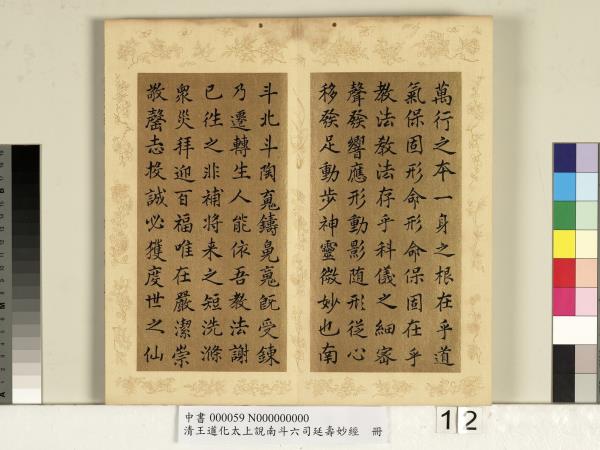 萬行之本一身之根在乎道
氣保固形命形命保固在乎
教法教法存乎科儀之細密
聲發響應形動影随形從心
移發足動步神靈微妙也南
斗北斗陶䰟鑄䰟䰟旣受鍊
乃遷轉生人能依吾教法謝
已徃之非補将来之短洗滌
衆災拜迎百福唯在嚴潔崇
敬罄志投誠必獲度世之仙
中書 000059 N000000000
清王道化太上說南斗六司延壽妙經 冊
12